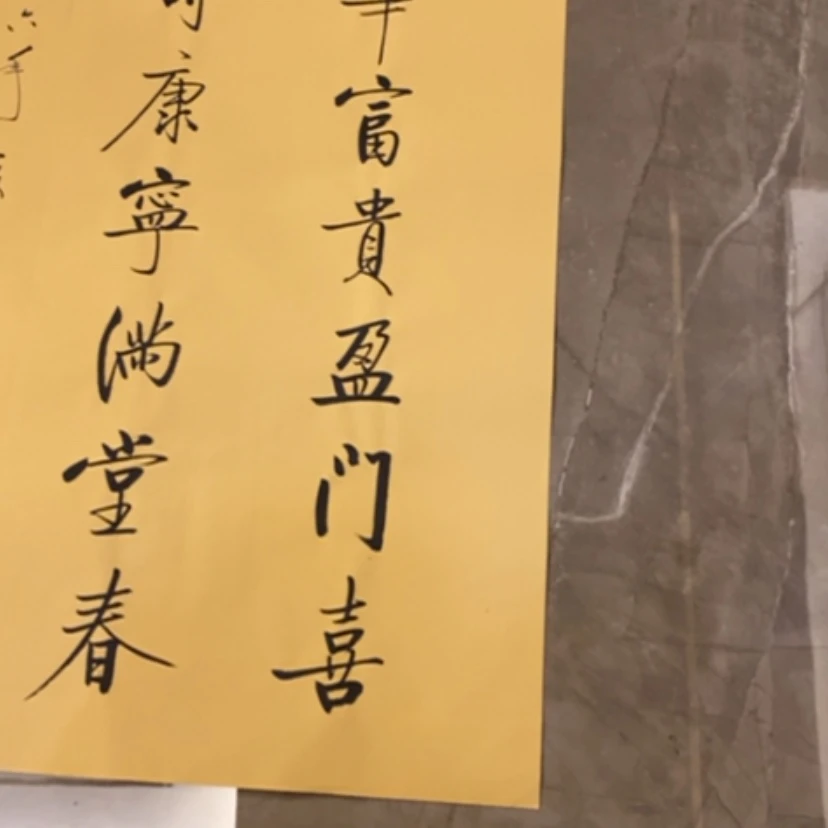 富貴盈门喜
康寧满堂春